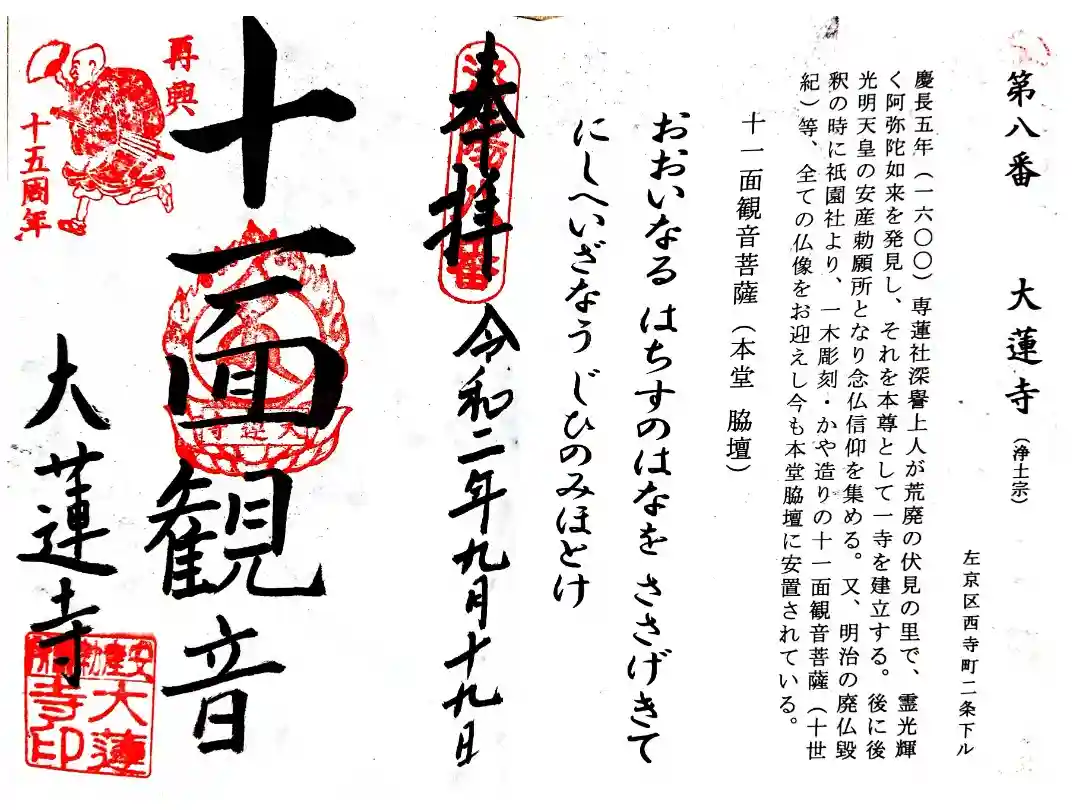 第八番 大蓮寺（浄土宗）
左京区西寺町二条下ル
慶長五年（一六〇〇）専蓮社深誉上人が荒廃の伏見の里で、霊光輝
く阿弥陀如来を発見し、それを本尊として一寺を建立する。後に後
光明天皇の安産勅願所となり念仏信仰を集める。又、明治の廃仏毀
釈の時に祇園社より、一木彫刻・かや造りの十一面観音菩薩（十世
紀）等、全ての仏像をお迎えし今も本堂脇壇に安置されている。
十一面観音菩薩（本堂 脇壇）
おおいなる はちすのはなを ささげきて
にしへいざなう じひのみほとけ
奉拝 令和二年九月十九日
洛陽八番
十一面観音
大蓮寺
大蓮寺
再興
十五周年
安産勅願所
大蓮
寺印